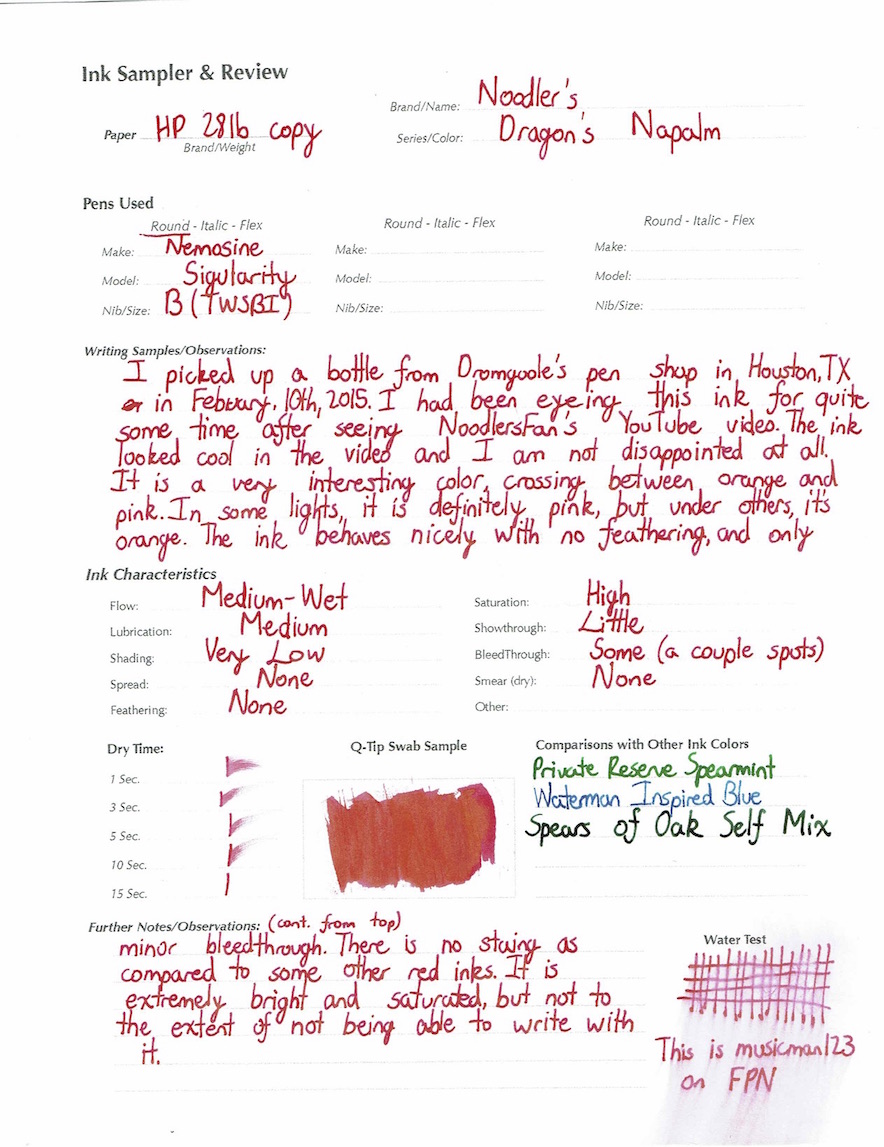 Ink Sampler & Review
Brand/Name: Noodler's
Paper HP 28lb copy
Brand/Weight
Series/Color: Dragon's Napalm
Pens Used
Round - Italic - Flex Round - Italic - Flex Round - Italic - Flex
Make: Nemosine Make: Make:
Model: Sigularity Model: Model:
Nib/Size: B (TWSBI) Nib/Size: Nib/Size:
Writing Samples/Observations:
I picked up a bottle from Dromgoole's pen shop in Houston, TX
in Febuary. 10th, 2015. I had been eyeing this ink for quite
some time after seeing NoodlersFan's YouTube video. The ink
looked cool in the video and I am not disappointed at all.
It is a very interesting color, crossing between orange and
pink. In some lights, it is definitely pink, but under others, it's
orange. The ink behaves nicely with no feathering, and only
Ink Characteristics
Flow: Medium-Wet Saturation: High
Lubrication: Medium Showthrough: Little
Shading: Very Low BleedThrough: Some (a couple spots)
Spread: None Smear (dry): None
Feathering: None Other:
Dry Time: Q-Tip Swab Sample Comparisons with Other Ink Colors
1 Sec. Private Reserve Spearmint
3 Sec. Waterman Inspired Blue
5 Sec. Spears of Oak Self Mix
10 Sec.
15 Sec.
Further Notes/Observations: (cont. from top)
minor bleedthrough. There is no staing as
compared to some other red inks. It is
extremely bright and saturated, but not to
the extent of not being able to write with
it.
Water Test
This is musicman123
on FPN